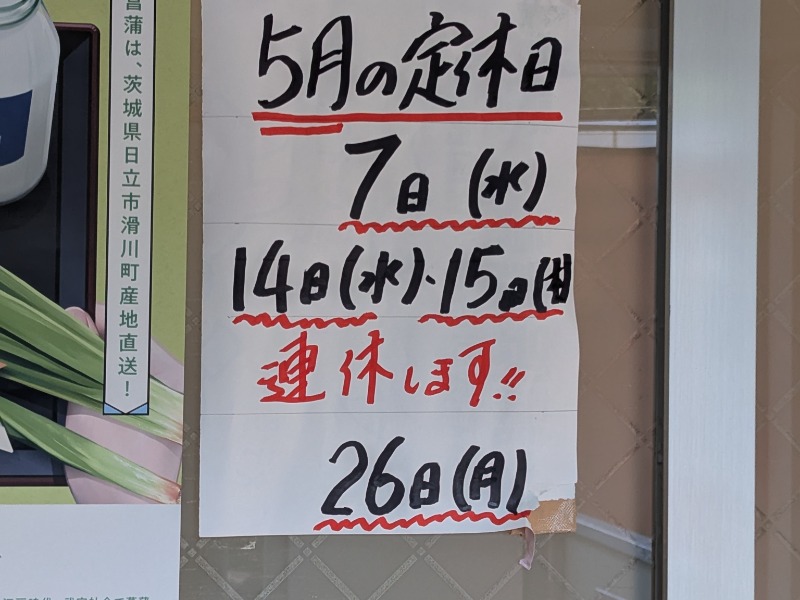 菖蒲は、茨城県日立市滑川町産地直送!
5月の定休日
7日(水)
14日(水)・15日(木)
連休します!!
26日(月)